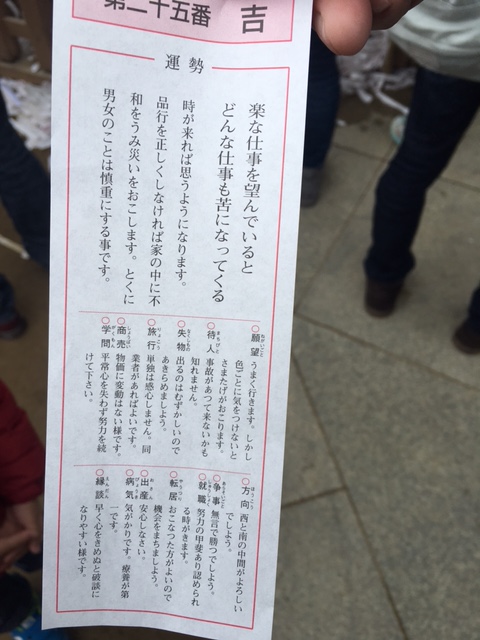 第二十五番
吉
運勢
楽な仕事を望んでいると
どんな仕事も苦になってくる
時が来れば思うようになります。
品行を正しくしなければ家の中に不
和をうみ災いをおこします。とくに
男女のことは慎重にする事です。
○願望 うまく行きます。しかし
色ごとに気をつけないと
さまたげがおこります。
○待人 事故があつて来ないかも
知れません。
○失物 出るのはむずかしいので
あきらめましょう。
○旅行 単独は感心しません。同
業者があればよいです。
○商売 物価に変動はない様です。
○学問 平常心を失わず努力を続
けて下さい。
○方向 西と南の中間がよろしい
でしよう。
○争事 無言で勝つでしょう。
○就職 努力の甲斐あり認められ
る時がきます。
○転居 おこなつた方がよいので
機会をまちましよう。
○出産 安心しなさい。
○病気 気がかりです。療養が第
一です。
○縁談 早く心をきめぬと破談に
なりやすい様です。